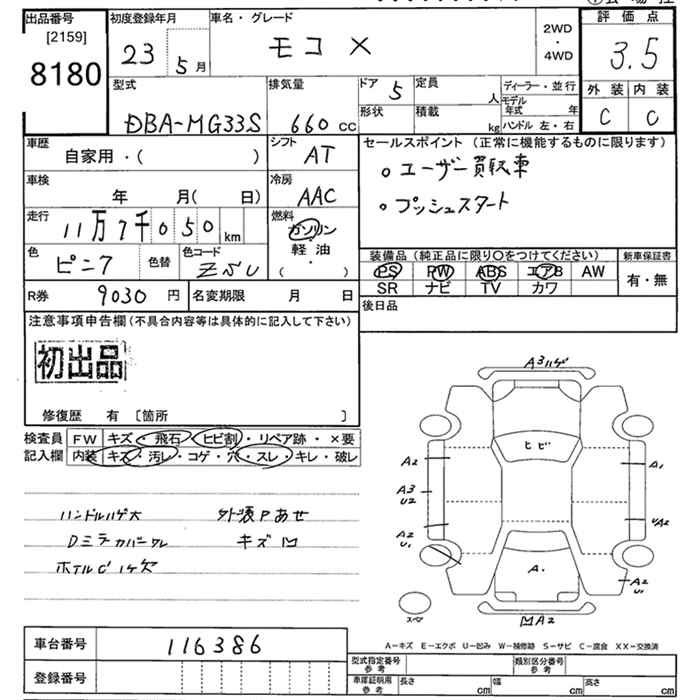 出品番号
[2159]
8180
初度登録年月
23 5月
車名・グレード
モコ X
2WD
・
4WD
評価点
3.5
外装 内装
C C
型式
DBA-MG33S
排気量
660 cc
ドア 5
形状
定員 人
積載 kg
ディーラー・並行
モデル年式 年
ハンドル 左・右
車歴
自家用・( )
シフト
AT
車検
年 月( 日)
冷房
AAC
走行
11万7千050km
燃料
ガソリン
軽油
・
( )
色
ピンク
色替
色コード
ZSU
R券 9030円
名変期限 月 日
セールスポイント(正常に機能するものに限ります)
○ユーザー買取車
○プッシュスタート
装備品(純正品に限り○をつけてください)
PS PW ABS エアB AW
SR ナビ TV カワ
新車保証書
有・無
後日品
注意事項申告欄(不具合内容等は具体的に記入して下さい)
初出品
修復歴 有 [箇所 ]
検査員記入欄
FW キズ・飛石・ヒビ割・リペア跡・×要
内装 キズ・汚レ・コゲ・穴・スレ・キレ・破レ
ハンドルハゲ大 外装Pあせ
Dミラーカバーワレ キズ凹
ホイルCハゲ
A3ハゲ
ヒビ
A2
A1
A3
U2
A2
U1
UA2
A2
U1
A1
凹A2
スペア
A-キズ E-エクボ U-凹み W-補修跡 S-サビ C-腐食 XX-交換済
車台番号 116386
登録番号
型式指定番号参考
類別区分番号参考
車庫証明用参考 長さ cm 幅 cm 高さ cm